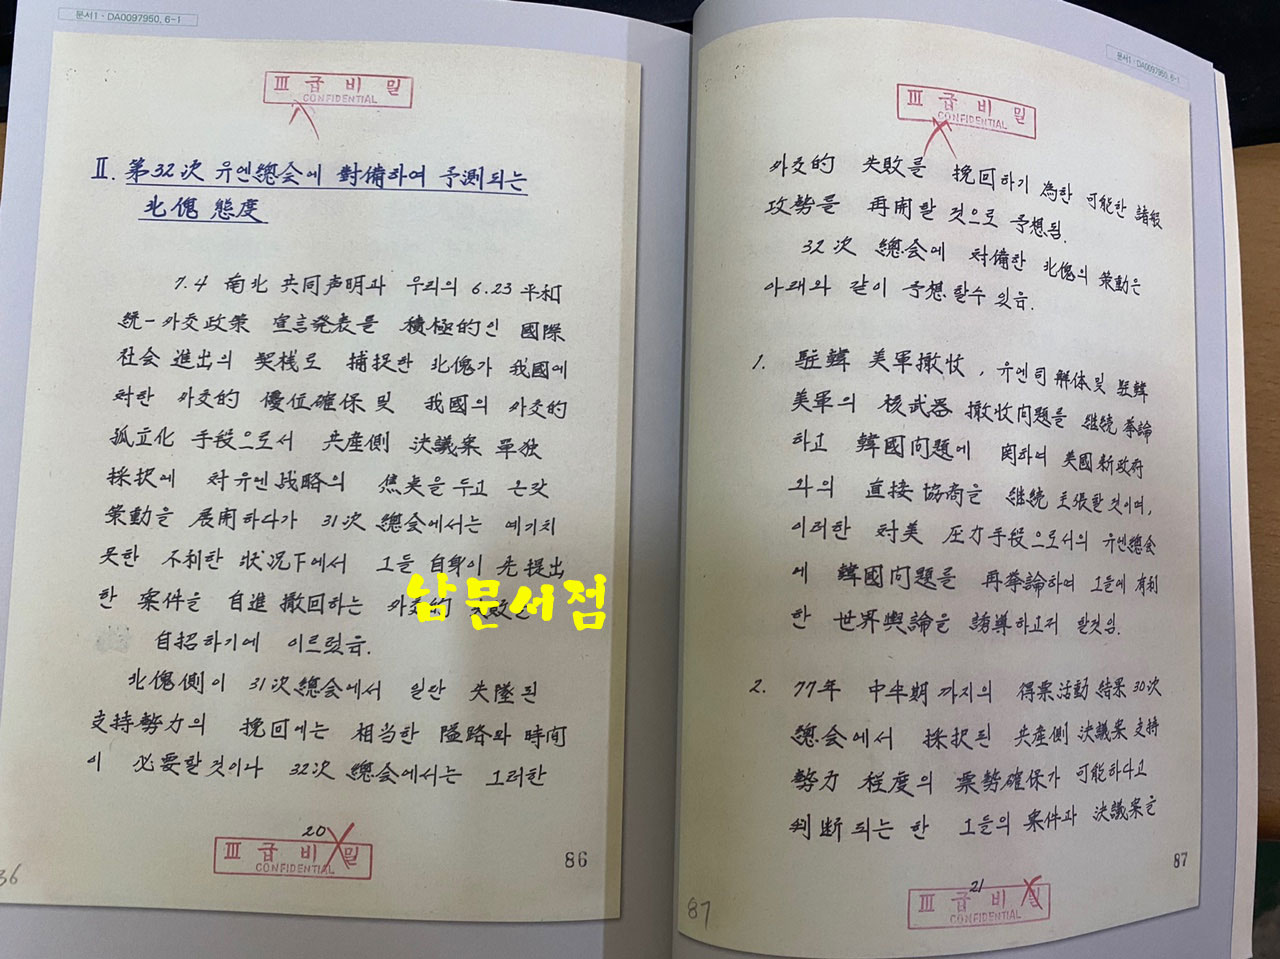 문서1 · DA0097950, 6-1
Ⅲ급비밀
CONFIDENTIAL
Ⅱ. 第32次 유엔總会에 對備하여 予測되는
北傀 態度
7.4 南北 共同声明과 우리의 6.23 平和
統一外交政策 宣言発表를 積極的인 國際
社会 進出의 契機로 捕捉한 北傀가 我國에
対한 外交的 優位確保 및 我國의 外交的
孤立化 手段으로서 共産側 決議案 單独
採択에 対유엔战略의 焦点을 두고 온갖
策動을 展開하다가 31次 總会에서는 예기치
못한 不利한 状况下에서 그들 自身이 先提出
한 案件을 自進 撤回하는 外交的 失敗를
自招하기에 이르렀음.
北傀側이 31次 總会에서 일단 失墜된
支持勢力의 挽回에는 相当한 隘路와 時間
이 必要할것이나 32次 總会에서는 그러한
20
Ⅲ급비밀
CONFIDENTIAL
86
36
남문서점
문서1 · DA0097950, 6-1
Ⅲ급비밀
CONFIDENTIAL
外交的 失敗를 挽回하기 為한 可能한 諸般
攻勢를 再開할 것으로 予想됨.
32次 總会에 対備한 北傀의 策動은
아래와 같이 予想할수 있음.
1. 駐韓 美軍撤收, 유엔司 解体 및 駐韓
美軍의 核武器 撤收问題를 継続 挙論
하고 韓國问題에 関하여 美國新政府
와의 直接協商을 継続 主張할것이며,
이러한 対美 圧力手段으로서의 유엔總会
에 韓國问題를 再挙論하여 그들에 有利
한 世界輿論을 誘導하고저 할것임.
2. 77年 中半期까지의 得票活動 結果 30次
總会에서 採択된 共産側 決議案 支持
勢力 程度의 票勢確保가 可能하다고
判断되는 한 그들의 案件과 決議案을
21
Ⅲ급비밀
CONFIDENTIAL
87
87